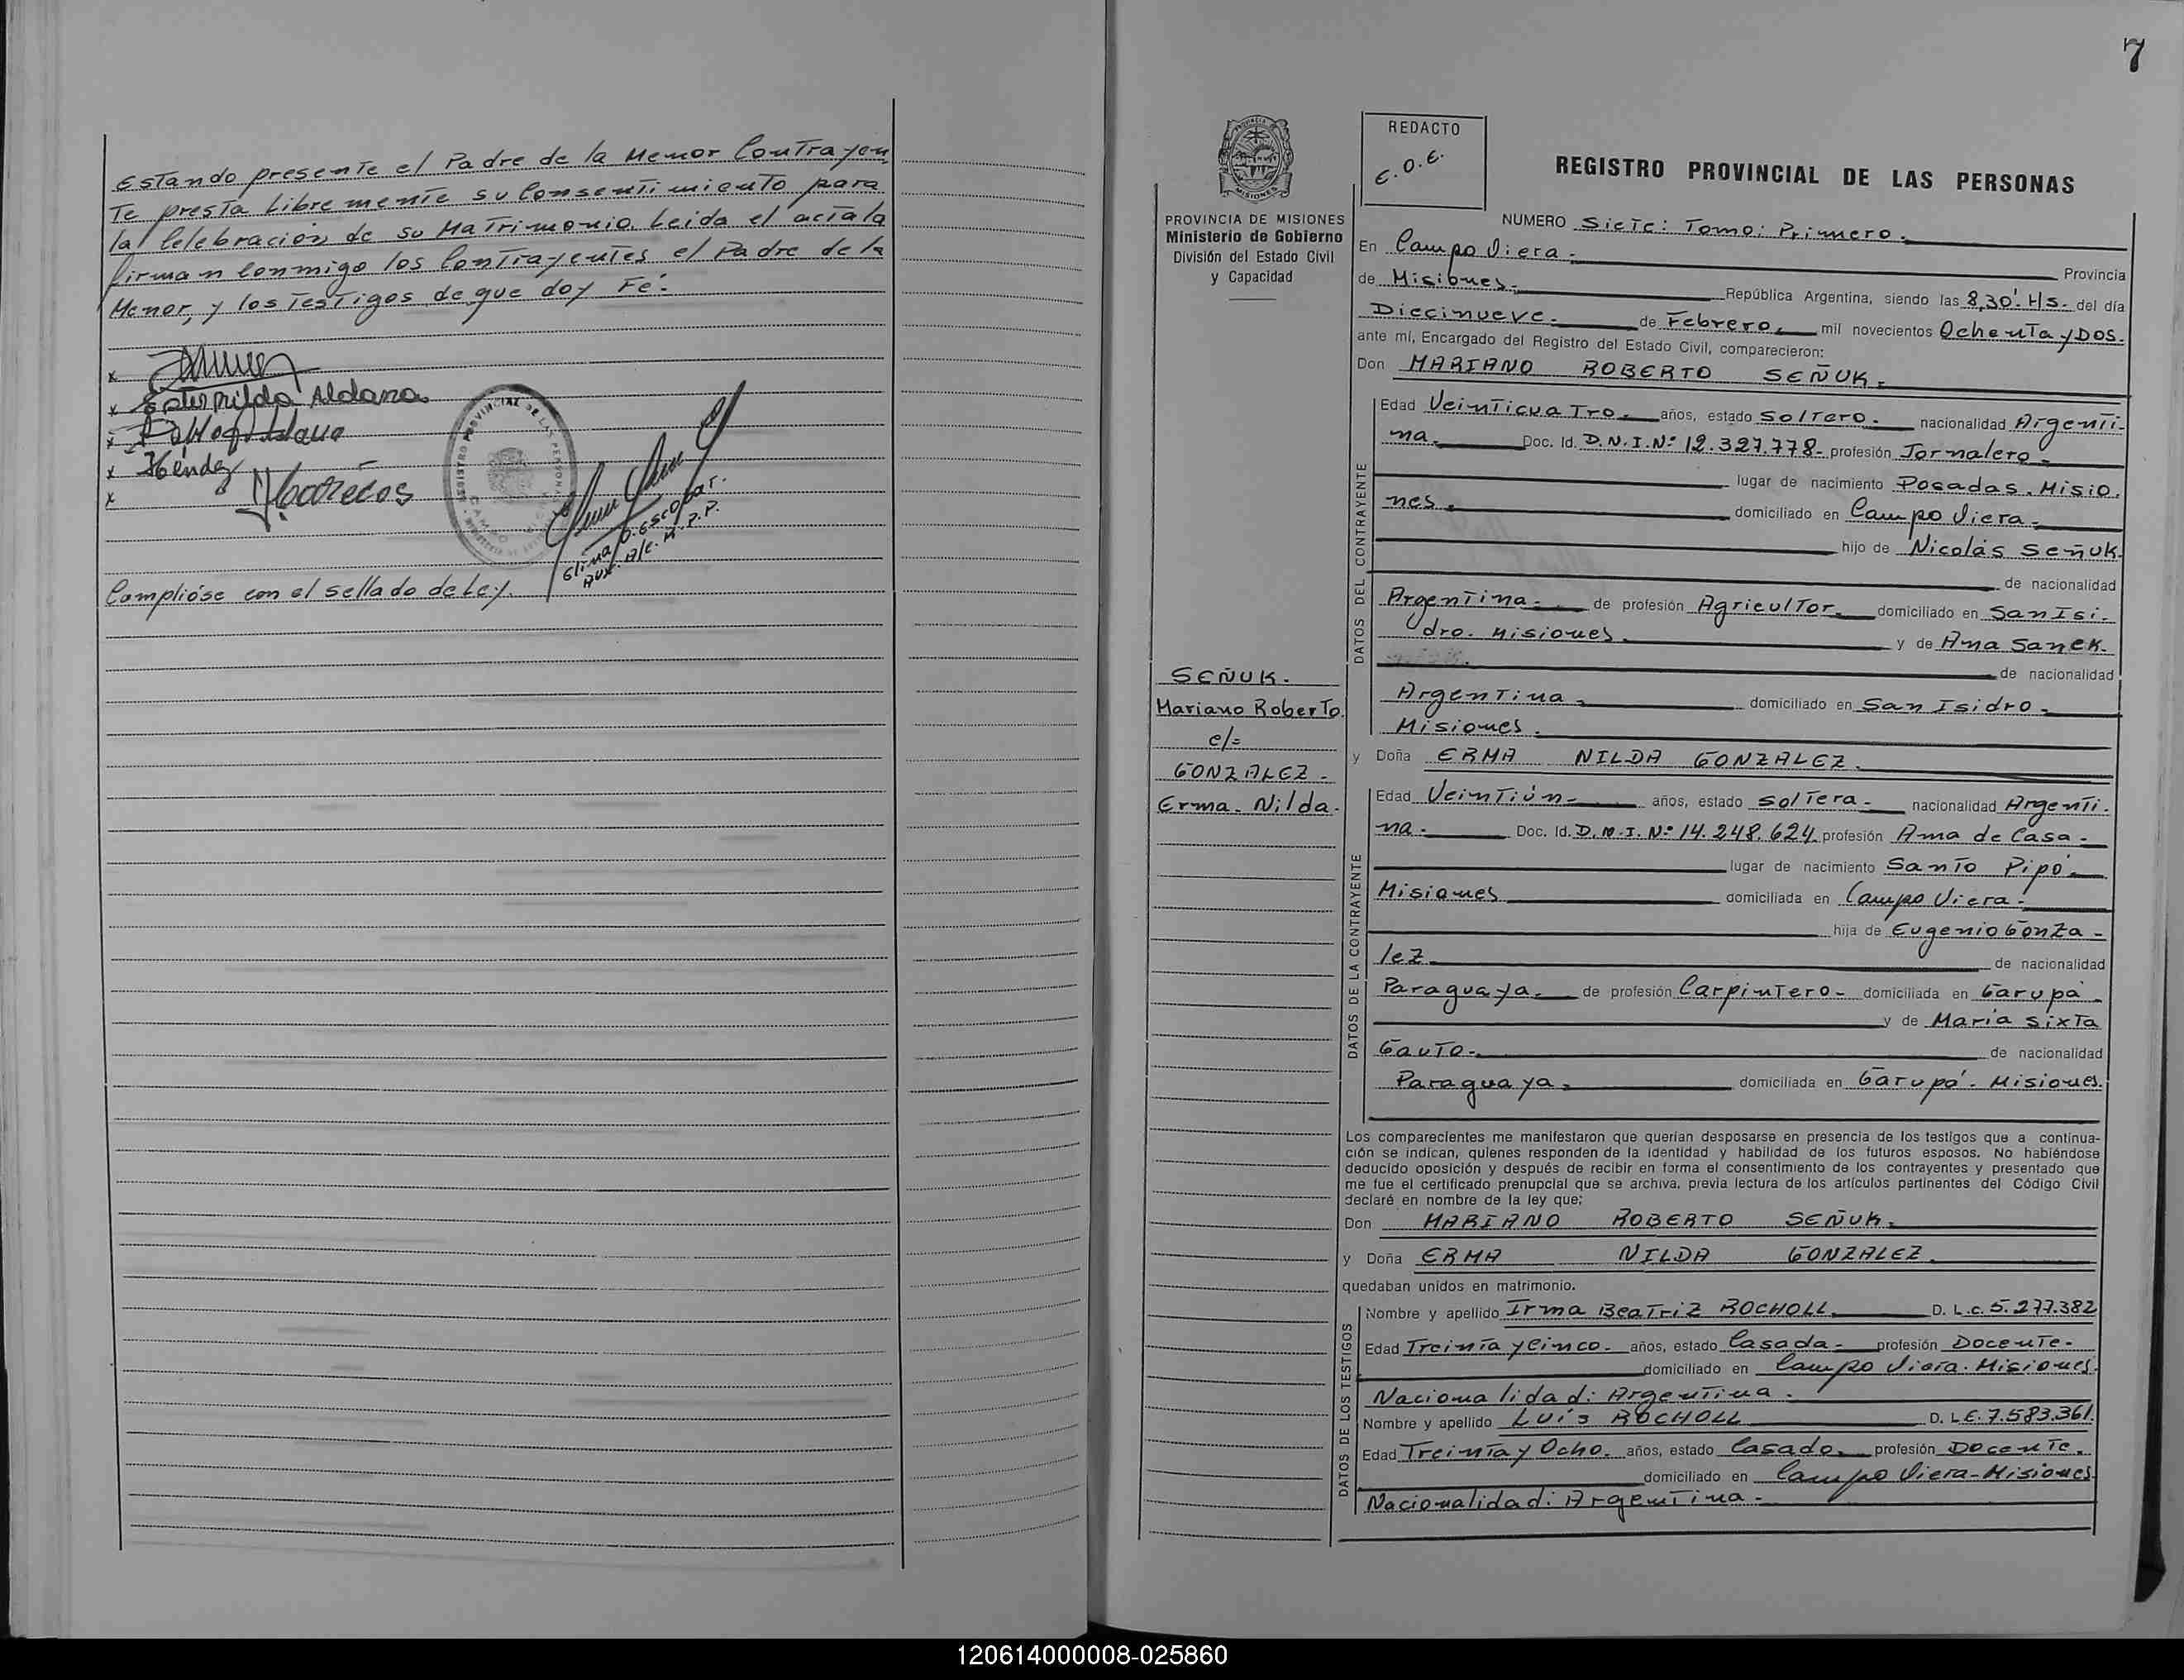 Estando presente el Padre de la Menor Contrayen
Te presta Libremente su Consentimiento para
la Celebración de su Matrimonio. Leida el acta la
firman conmigo los Contrayentes el Padre de la
Menor, y los Testigos de que doy Fé.
x
x Estermilda Aldana
x
x Méndez
x
REGISTRO PROVINCIAL DE LAS PERSONAS
Elina O. Escobar.
Aux. A/c. R.P.P.
Complióse con el sellado de Ley.
7
PROVINCIA DE MISIONES
Ministerio de Gobierno
División del Estado Civil
y Capacidad
SEÑUK.
Mariano Roberto
c/=
GONZALEZ -
Erma - Nilda.
REDACTO
E.O.E.
REGISTRO PROVINCIAL DE LAS PERSONAS
NUMERO Siete: Tomo: Primero.-
En Campo Viera.- Provincia
de Misiones.- República Argentina, siendo las 8,30'- Hs- del día
Diecinueve.- de Febrero, mil novecientos Ochenta y Dos.
ante mí, Encargado del Registro del Estado Civil, comparecieron:
Don MARIANO ROBERTO SEÑUK.-
DATOS DEL CONTRAYENTE
Edad Veinticuatro.- años, estado Soltero.- nacionalidad Argenti-
na.- Doc. Id. D.N.I.Nº 12.327.778- profesión Jornalero-
lugar de nacimiento Posadas. Misio.
nes. domiciliado en Campo Viera-
hijo de Nicolás Señuk.
de nacionalidad
Argentina.- de profesión Agricultor.- domiciliado en San Isi-
dro. Misiones. y de Ana Sanek.
de nacionalidad
Argentina.- domiciliado en San Isidro.-
Misiones.
y Doña ERMA NILDA GONZALEZ.
DATOS DE LA CONTRAYENTE
Edad Veintiún- años, estado soltera.- nacionalidad Argenti-
na.- Doc. Id. D.N.I. Nº 14.248.624. profesión Ama de Casa-
lugar de nacimiento Santo Pipó.
Misiones domiciliada en Campo Viera.-
hija de Eugenio Gonza-
lez. de nacionalidad
Paraguaya. de profesión Carpintero- domiciliada en Garupá
y de María Sixta
Gauto.- de nacionalidad
Paraguaya.- domiciliada en Garupá. Misiones.
Los comparecientes me manifestaron que querían desposarse en presencia de los testigos que a continua-
ción se indican, quienes responden de la identidad y habilidad de los futuros esposos. No habiéndose
deducido oposición y después de recibir en forma el consentimiento de los contrayentes y presentado que
me fue el certificado prenupcial que se archiva, previa lectura de los artículos pertinentes del Código Civil
declaré en nombre de la ley que;
Don MARIANO ROBERTO SEÑUK.-
y Doña ERMA NILDA GONZALEZ.
quedaban unidos en matrimonio.
DATOS DE LOS TESTIGOS
Nombre y apellido Irma Beatriz ROCHOLL. D. L.C. 5.277.382
Edad Treinta y Cinco.- años, estado Casada.- profesión Docente-
domiciliado en Campo Viera. Misiones.
Nacionalidad: Argentina.
Nombre y apellido LUIS ROCHOLL D. L.E. 7.583.361.
Edad Treinta y Ocho.- años, estado Casado. profesión Docente.
domiciliado en Campo Viera-Misiones
Nacionalidad: Argentina-
120614000008-025860